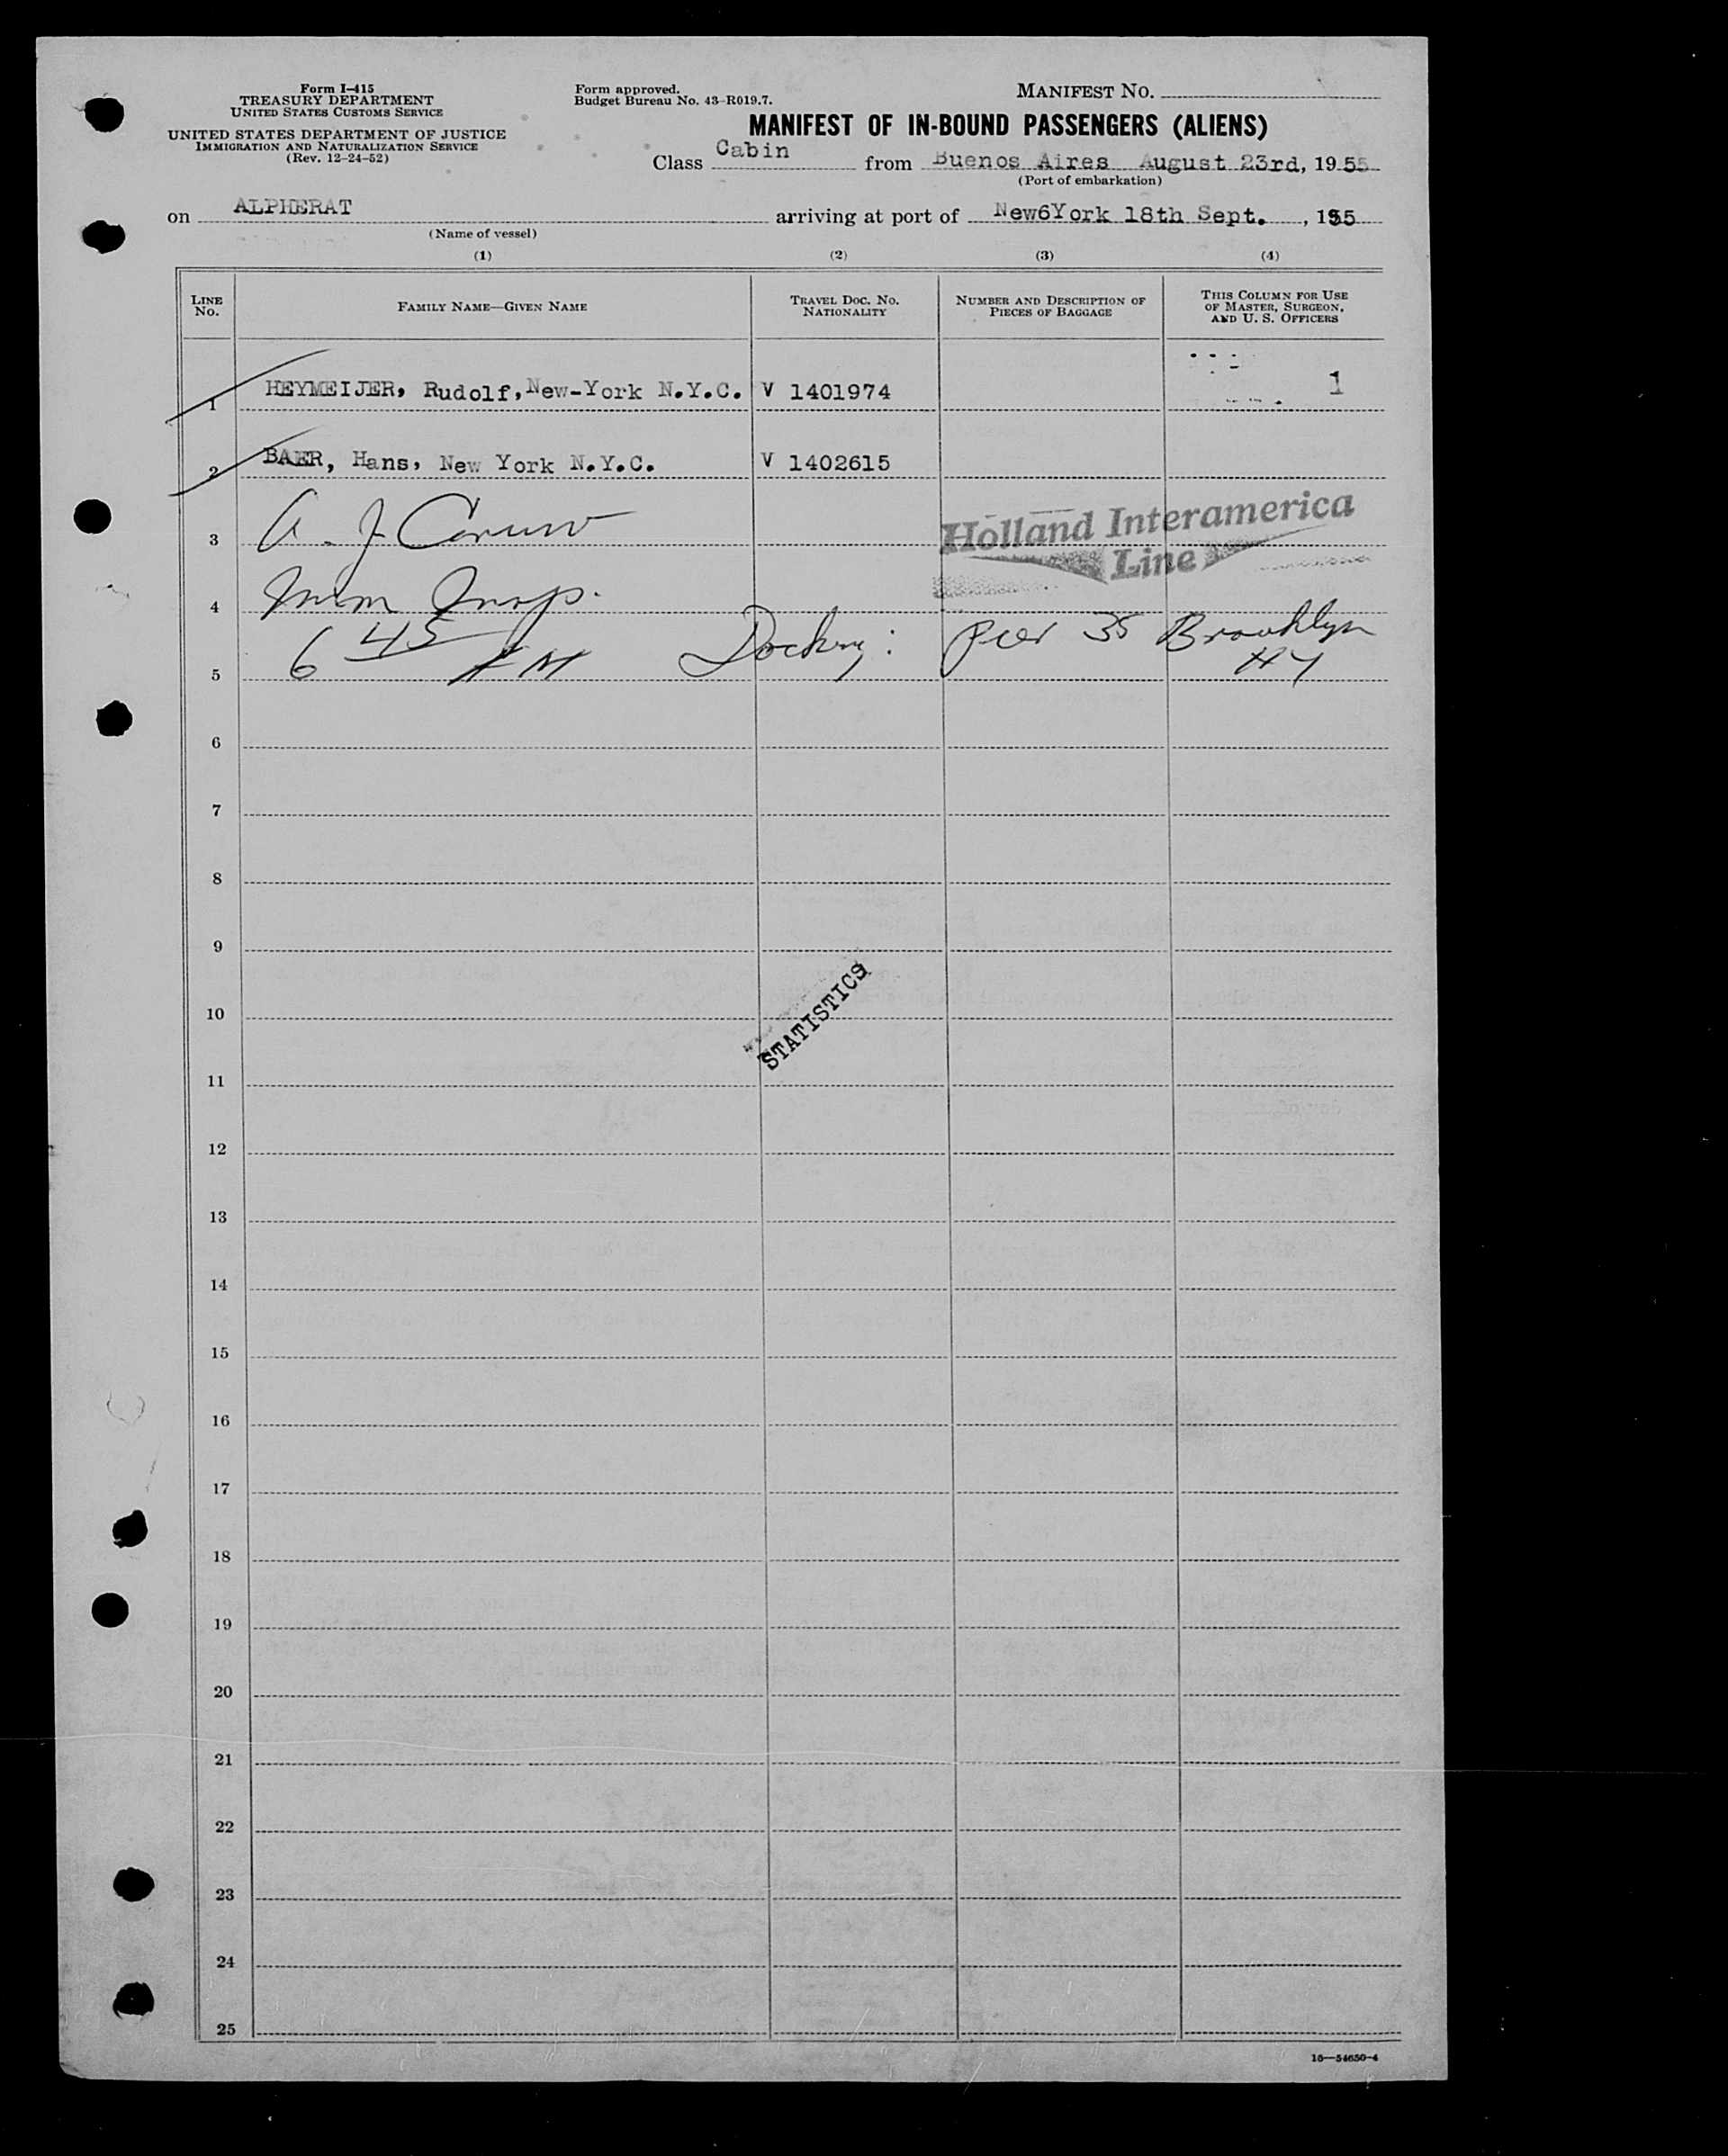 Form I-415
TREASURY DEPARTMENT
UNITED STATES CUSTOMS SERVICE
UNITED STATES DEPARTMENT OF JUSTICE
IMMIGRATION AND NATURALIZATION SERVICE
(Rev. 12-24-52)
Form approved.
Budget Bureau No. 43-R019.7.
MANIFEST NO.
MANIFEST OF IN-BOUND PASSENGERS (ALIENS)
Class Cabin from Buenos Aires August 23rd, 1955
(Port of embarkation)
on ALPHERAT arriving at port of New6York 18th Sept. , 1955
(Name of vessel)
(1) (2) (3) (4)
LINE NO.
FAMILY NAME—GIVEN NAME
TRAVEL DOC. NO. NATIONALITY
NUMBER AND DESCRIPTION OF PIECES OF BAGGAGE
THIS COLUMN FOR USE OF MASTER, SURGEON, AND U. S. OFFICERS
1 HEYMEIJER, Rudolf, New-York N.Y.C. V 1401974 1
2 BAER, Hans, New York N.Y.C. V 1402615
3 A. J. Caruso Holland Interamerica
Line
4 Imm Insp.
5 6 45 AM Docking: Pier 35 Brooklyn
NY
6
7
8
9
STATISTICS
10
11
12
13
14
15
16
17
18
19
20
21
22
23
24
25
16—54650-4